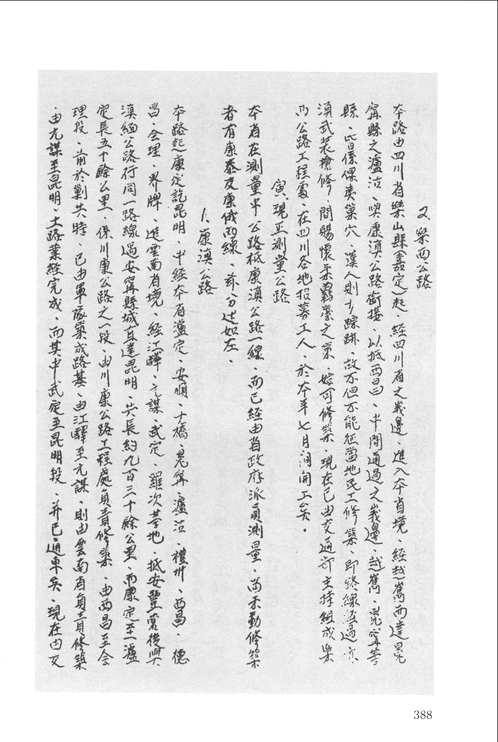 2.樂西公路
本路由四川省樂山縣(嘉定)起、經四川省之峨邊、進入本省境、經越嶲而達冕
寧縣之瀘沽、與康滇公路銜接、以抵西昌、中間通過之峨邊、越嶲、冕寧等
縣、皆係倮夷巢穴、漢人則少蹤跡、故不但不能征當地民工修築、即路線經過亦
須武裝槍修、間賜懷柔羈縻之策、始可修築、現在已由交通部主持組成樂
西公路工程處、在四川各地招募工人、於本年七月間開工矣。
寅、現正測量公路
本省在測量中公路祗康滇公路一線、而已經由省政府派員測量、尚未動修築
者有康泰及康俄兩線、茲分述如左、
1.康滇公路
本路起康定訖昆明、中經本省瀘定、安順、十橋、冕寧、瀘沽、禮州、西昌、德
昌、會理、界牌、進雲南省境、經江驛、元謀、武定、羅次等地、抵安豐營後與
滇緬公路行同一路線過安寧縣城直達昆明、共長約九百三十餘公里、而康定至瀘
定長五十餘公里、係川康公路之一段、由川康公路工程處負責修築、由西昌至會
理段、前於剿共時、已由軍隊築成路基、由江驛至元謀、則由雲南省負責修築
、由元謀至昆明、土路業經完成、而其中武定至昆明段、并已通車矣、現在由交
388